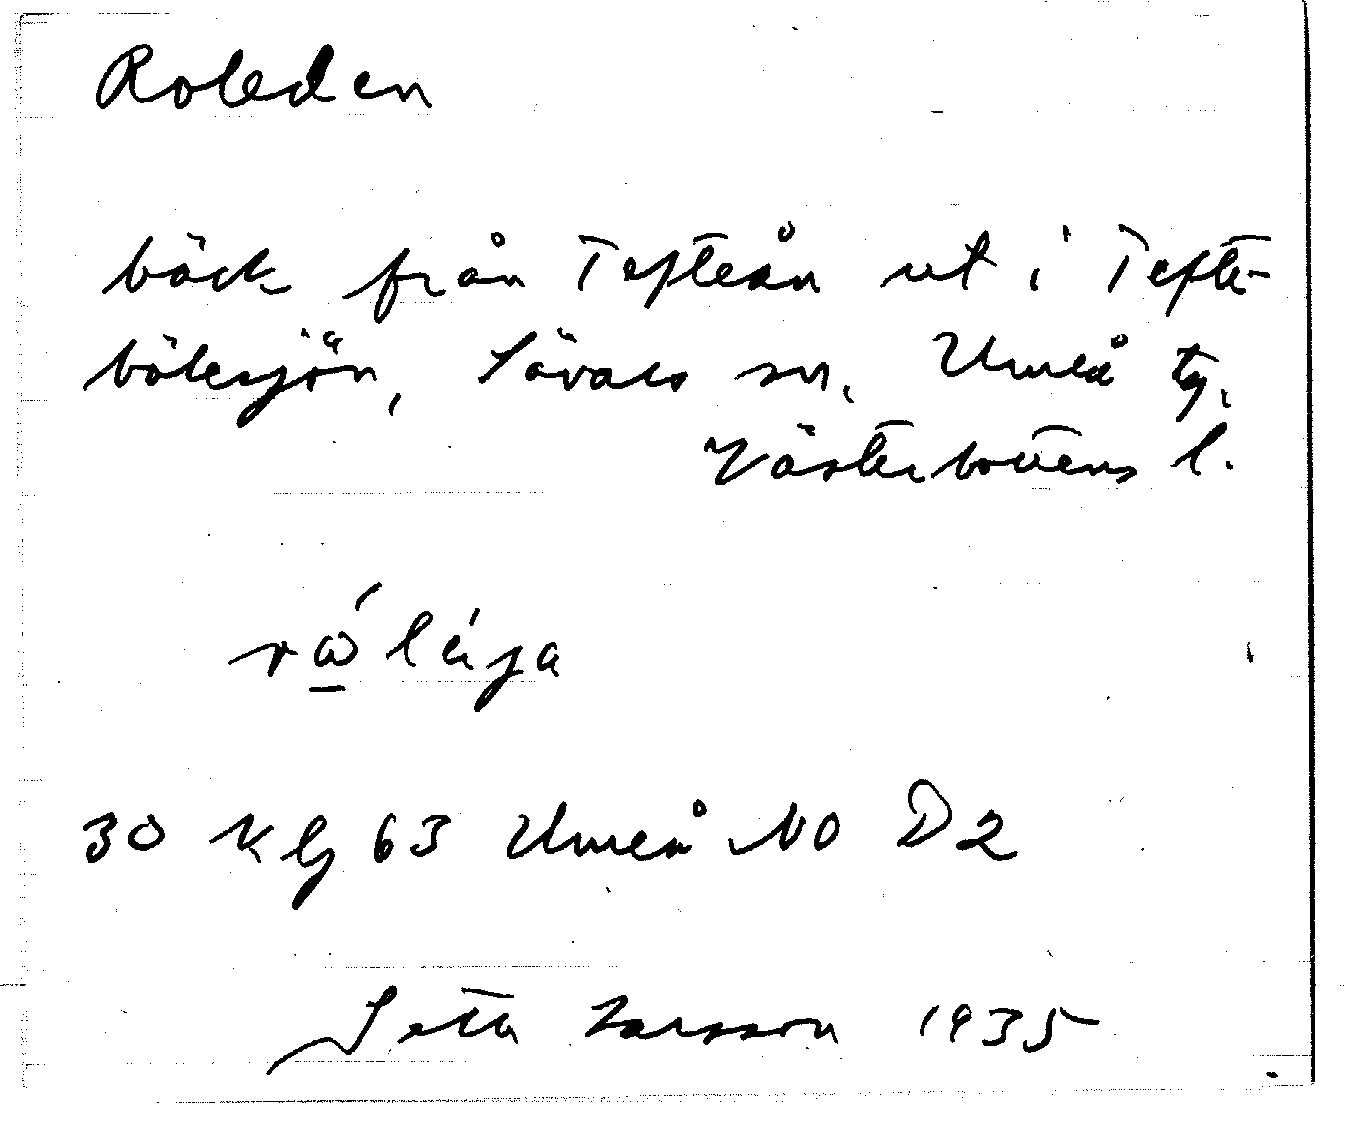 Roleden
bäck från Tefteån ut i Tefte-
bölesjön, Sävars sn. Umeå tg.
Västerbottens l.
30 Kbg 63 Umeå NO D2
Jetta Larsson 1935